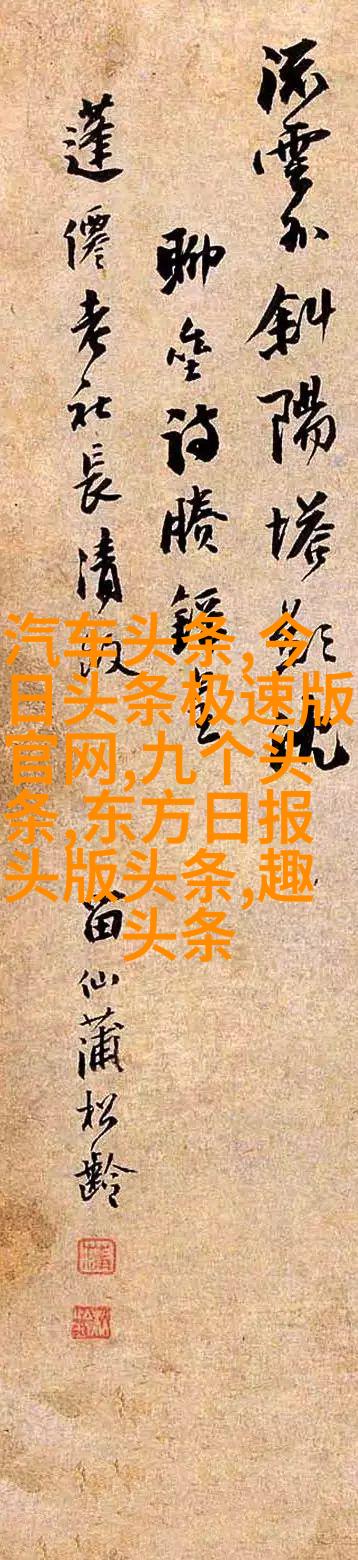 雲外斜陽塔影
聊詩
蓬僊老社長清政
留仙蒲松齡
汽车头条,今
日头条极速版
官网,九个头
条,东方日报
头版头条,趣
头条